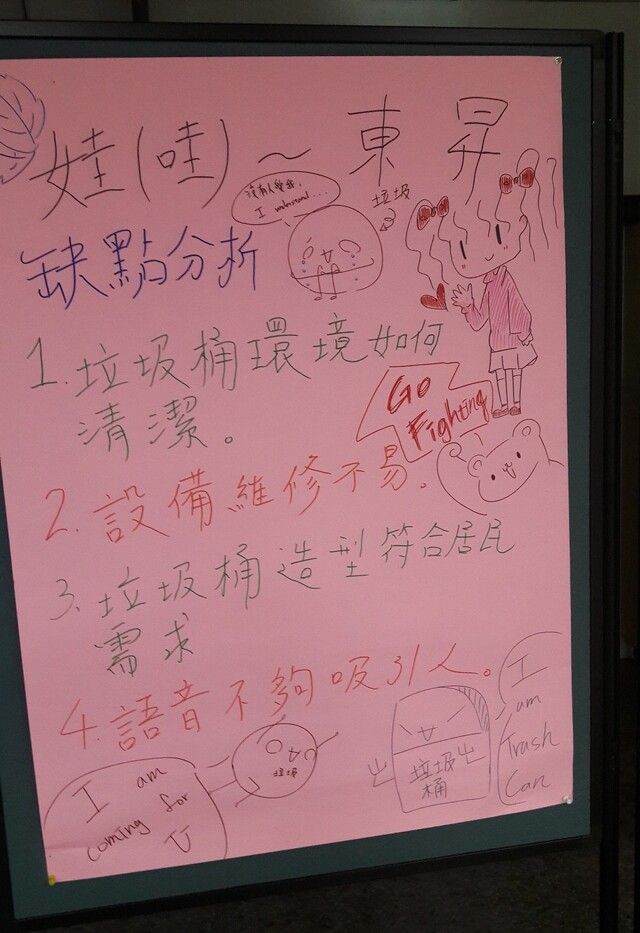 娃(哇)～東昇
沒有人愛我.
I understand....
垃圾
缺點分析
1.垃圾桶環境如何
清潔。
Go
Fighting
2.設備維修不易.
3.垃圾桶造型符合居民
需求
4.語音不夠吸引人。
I am
Trash
Can
垃圾
垃圾
桶
I am
coming for
U